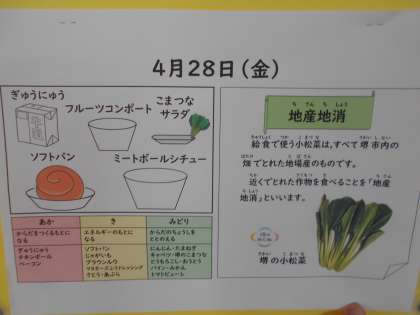 4月28日（金）
ぎゅうにゅう
フルーツコンポート
こまつな
サラダ
ソフトパン
ミートボールシチュー
あか
き
みどり
からだをつくるもとに
なる
エネルギーのもとに
なる
からだのちょうしを
ととのえる
ぎゅうにゅう
チキンボール
ベーコン
ソフトパン
じゃがいも
ブラウンルウ
さとう・あぶら
にんじん・たまねぎ
キャベツ・堺のこまつな
とうもろこし・おうとう
パイン・みかん
トマトピューレ
地産地消
ち さん ち しょう
給食で使う小松菜は、すべて堺市内の
畑でとれた地場産のものです。
近くでとれた作物を食べることを「地産
地消」といいます。
堺の小松菜